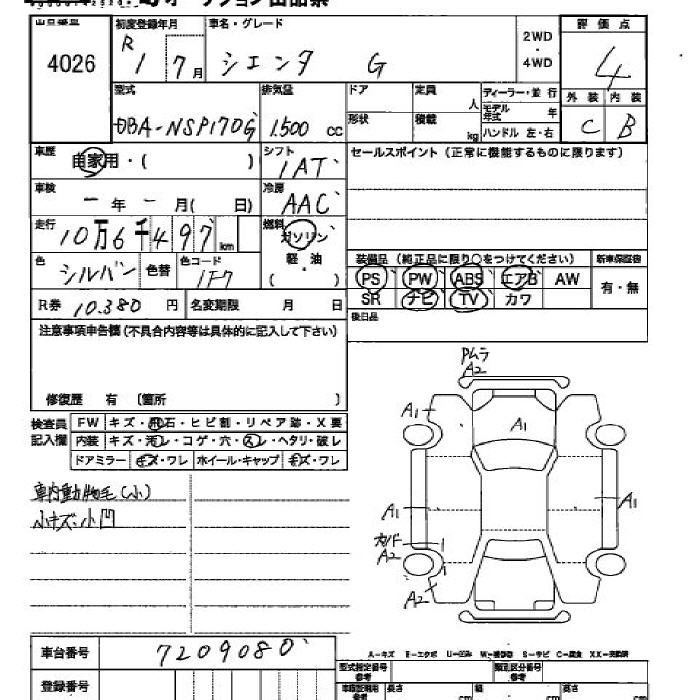 オークション出品票
出品番号 初度登録年月 車名・グレード 2WD・4WD 評価点
4026 R 1 7月 シエンタ G 4
外装 内装
C B
型式 排気量 ドア 定員 人 ディーラー・並行
DBA-NSP170G 1,500 cc 形状 積載 kg モデル年式 年 ハンドル 左・右
車歴 自家用・( ) シフト 1AT セールスポイント(正常に機能するものに限ります)
車検 ー年 ー月( 日) 冷房 AAC
走行 10万6千497km 燃料 ガソリン 軽油 ( )
色 シルバー 色替 色コード 1F7
装備品(純正品に限り○をつけてください) 新車保証書
PS PW ABS エアB AW 有・無
SR ナビ TV カワ
R券 10.380 円 名変期限 月 日 後日品
注意事項申告欄(不具合内容等は具体的に記入して下さい)
修復歴 有 〔箇所 〕
検査員記入欄 FW キズ・飛石・ヒビ割・リペア跡・X要
内装 キズ・汚レ・コゲ・穴・スレ・ヘタリ・破レ
ドアミラー キズ・ワレ ホイール・キャップ キズ・ワレ
車内動物毛(小)
小キズ・小凹
Pムラ
A2
A1
A1
A1
A1
A2
A2
A-キズ E-エクボ U-凹み S-サビ C-腐食 XX-交換済
車台番号 7209080
型式指定番号 参考 類別区分番号 参考
登録番号 長さ cm 幅 cm 高さ cm